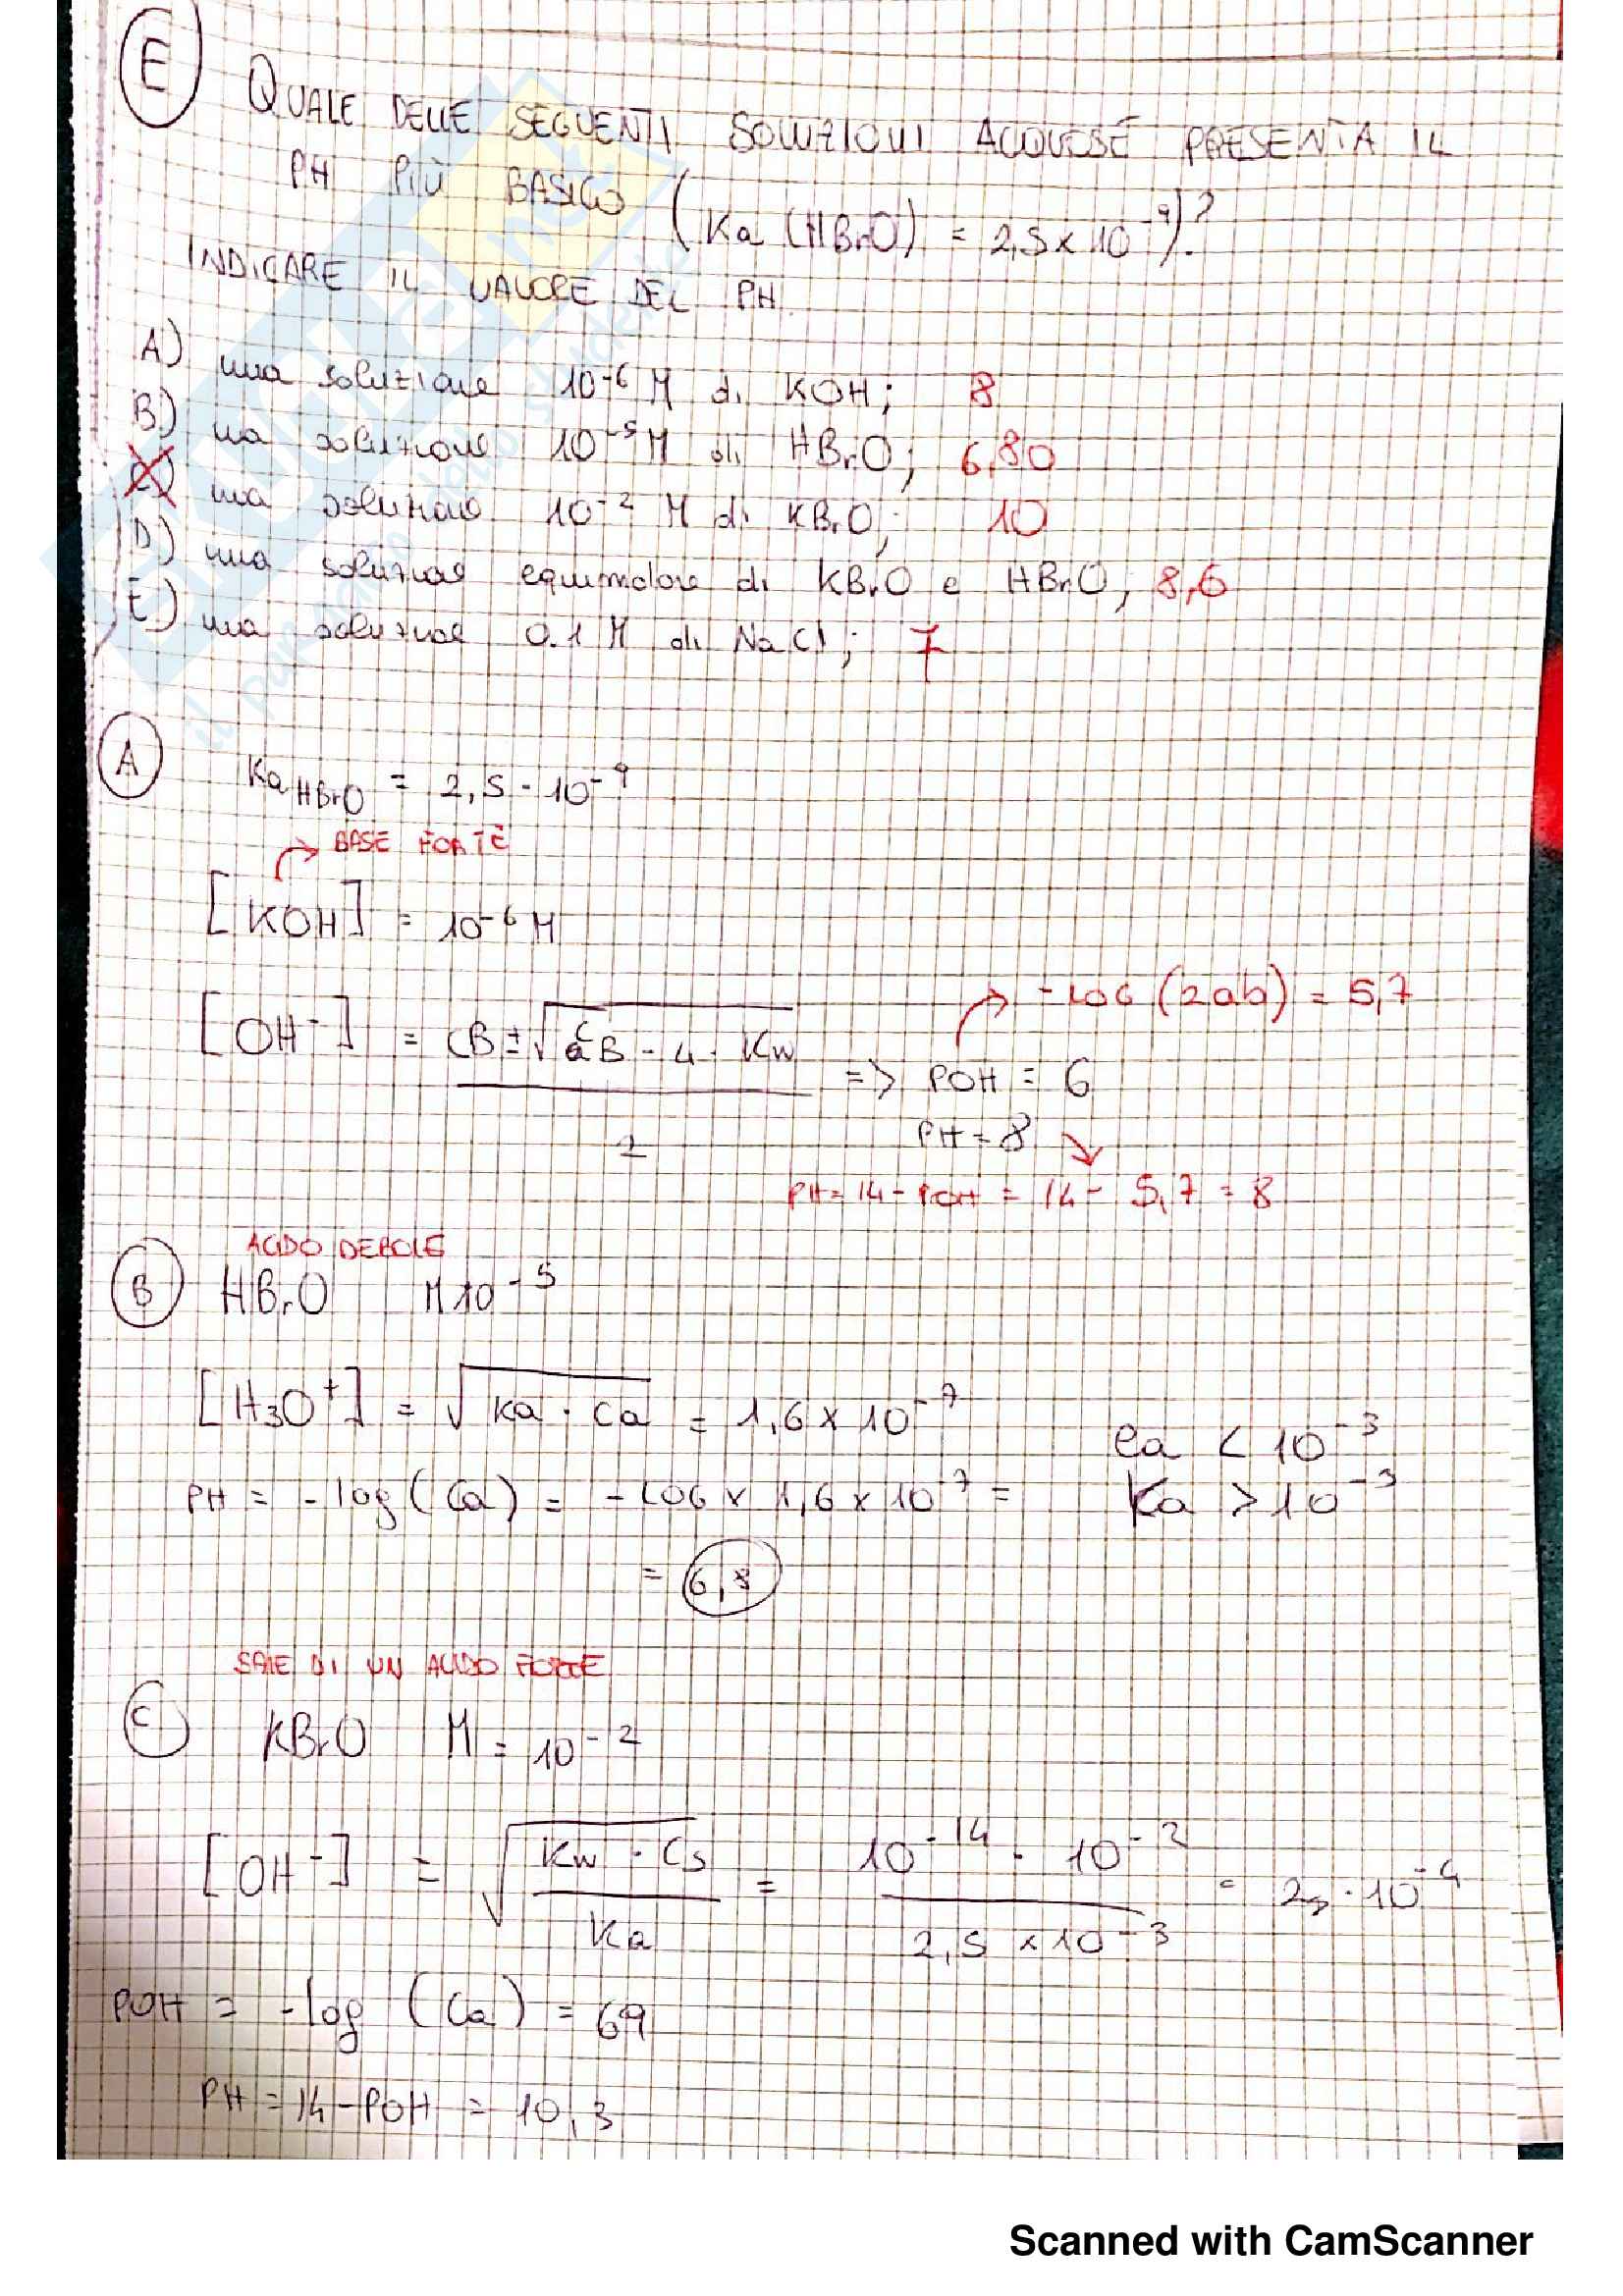 E
QUALE DELLE SEGUENTI SOLUZIONI ACQUOSE PRESENTA IL
PH PIÙ BASICO (Ka (HBrO) = 2,5 x 10^-9)?
INDICARE IL VALORE DEL PH.
A) una soluzione 10^-6 M di KOH; 8
B) una soluzione 10^-5 M di HBrO; 6,80
C) una soluzione 10^-2 M di KBrO; 10
D) una soluzione equimolare di KBrO e HBrO, 8,6
E) una soluzione 0.1 M di NaCl; 7
A
Ka HBrO = 2,5 · 10^-9
BASE FORTE
[KOH] = 10^-6 M
-LOG (2ab) = 5,7
[OH^-] = CB ± √ CB - 4 · Kw => POH = 6
2
PH = 8
PH = 14 - POH = 14 - 5,7 = 8
ACIDO DEBOLE
B HBrO M 10^-5
[H3O^+] = √Ka · Ca = 1,6 x 10^-7
Ca < 10^-3
PH = -log (Ca) = -LOG x 1,6 x 10^-7 =
Ka > 10^-3
= 6,8
SALE DI UN ACIDO FORTE
C KBrO M = 10^-2
[OH^-] = √ Kw · Cs = 10^-14 · 10^-2 = 2, · 10^-4
Ka 2,5 x 10^-3
POH = -log (Ca) = 69
PH = 14 - POH = 10,3
SKUOLA.net
il paradiso dello studente
Scanned with CamScanner